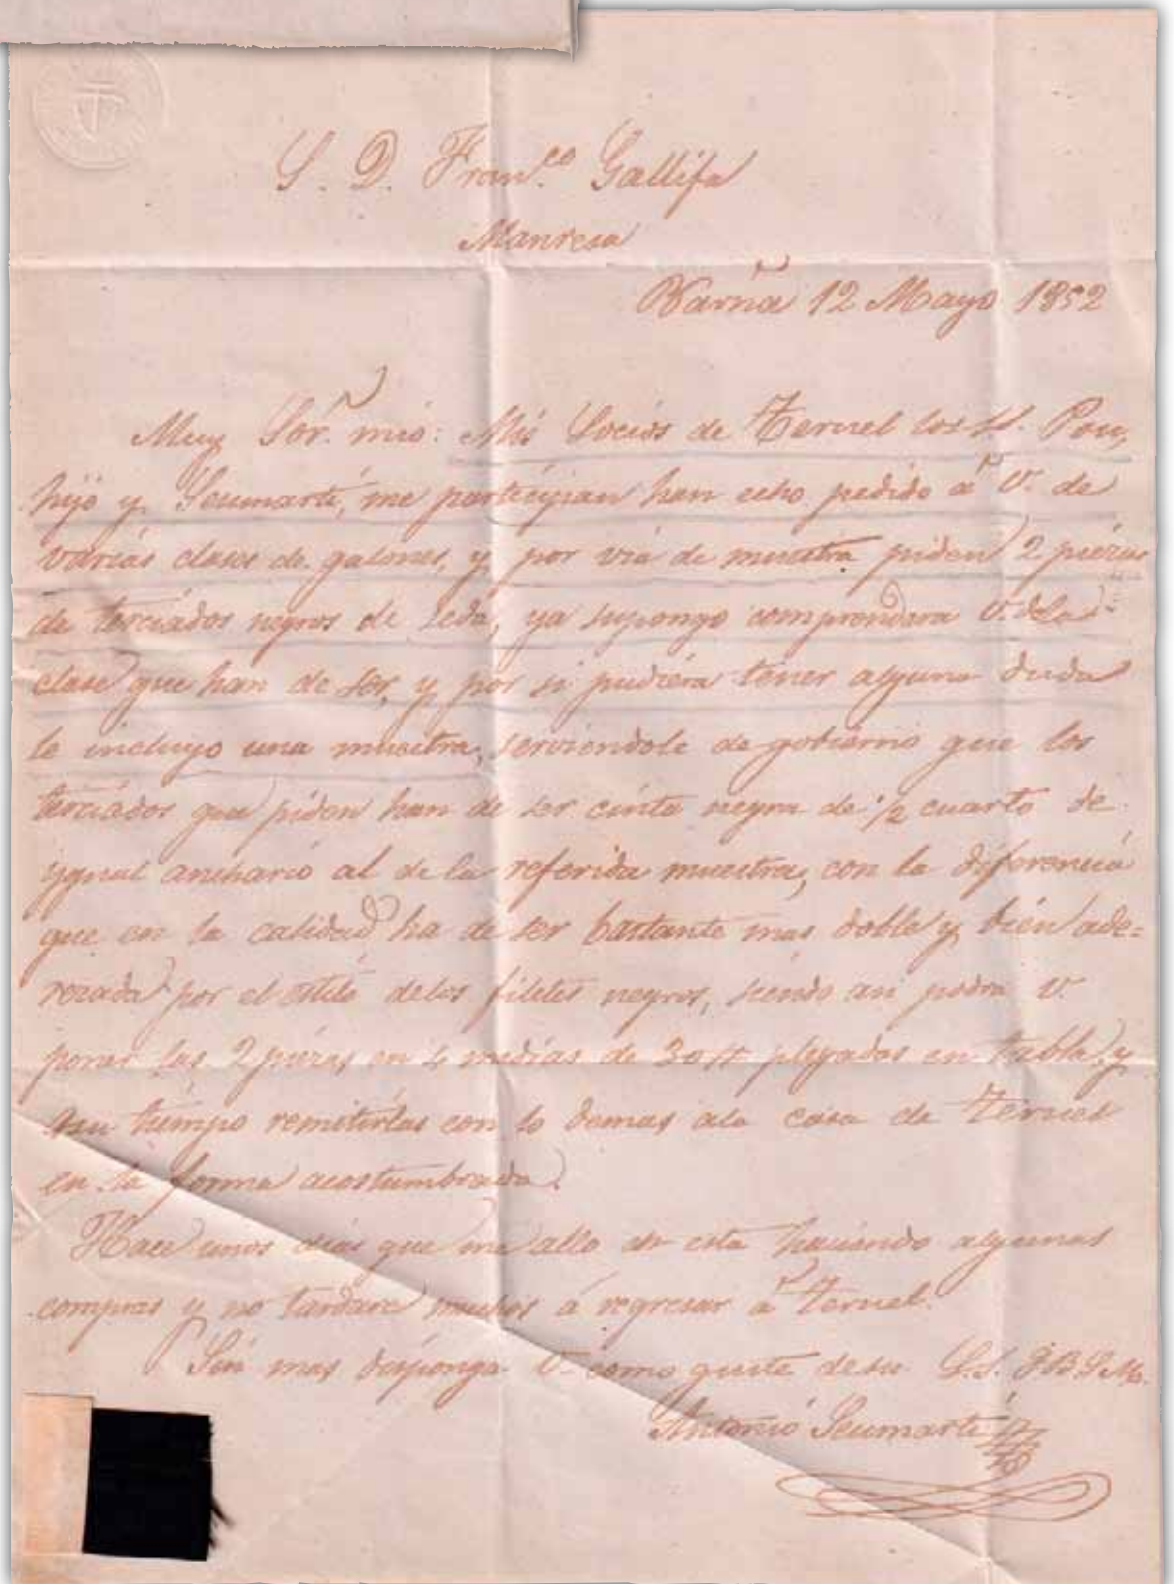 S. D. Fran.co Gallifa
Manresa
Barña 12 Mayo 1852
Muy Sör. mio: Mis Socios de Teruel los S.S. Pou,
hijo y Seumarti, me participian han echo pedido á V. de
varias clases de galones, y por via de muestra piden 2 piezas
de terciados negros de seda, ya supongo comprendera V. dela
clase que han de ser, y por si pudiera tener alguna duda
le incluyo una muestra, serviendole de gobierno que los
terciados que piden han de ser cinta negra de 1/2 cuarto de
ygual anchario al de la referida muestra, con la diferencia
que en la calidad ha de ser bastante mas doble y bien ade=
rezada por el estilo delos filetes negros, siendo asi podra V.
poner las 2 piezas en 4 medias de 30 plegados en tabla, y
asu tiempo remitirlas con lo demas ala casa de Teruel
en la forma acostumbrada.
Hace unos dias que me allo en esta haciendo algunas
compras y no tardare muchos á regresar á Teruel.
Sin mas disponga V. como guste de su S.S. Q.B.S.M.
Antonio Seumarti